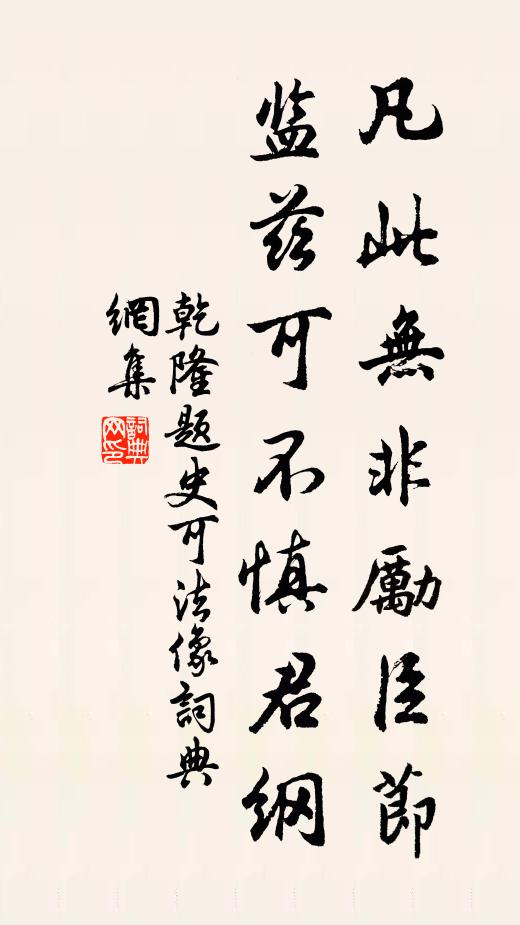 凡此無非勵臣節
监茲可不慎君纲
乾隆题史可法像詞典
網集
詞典
网印